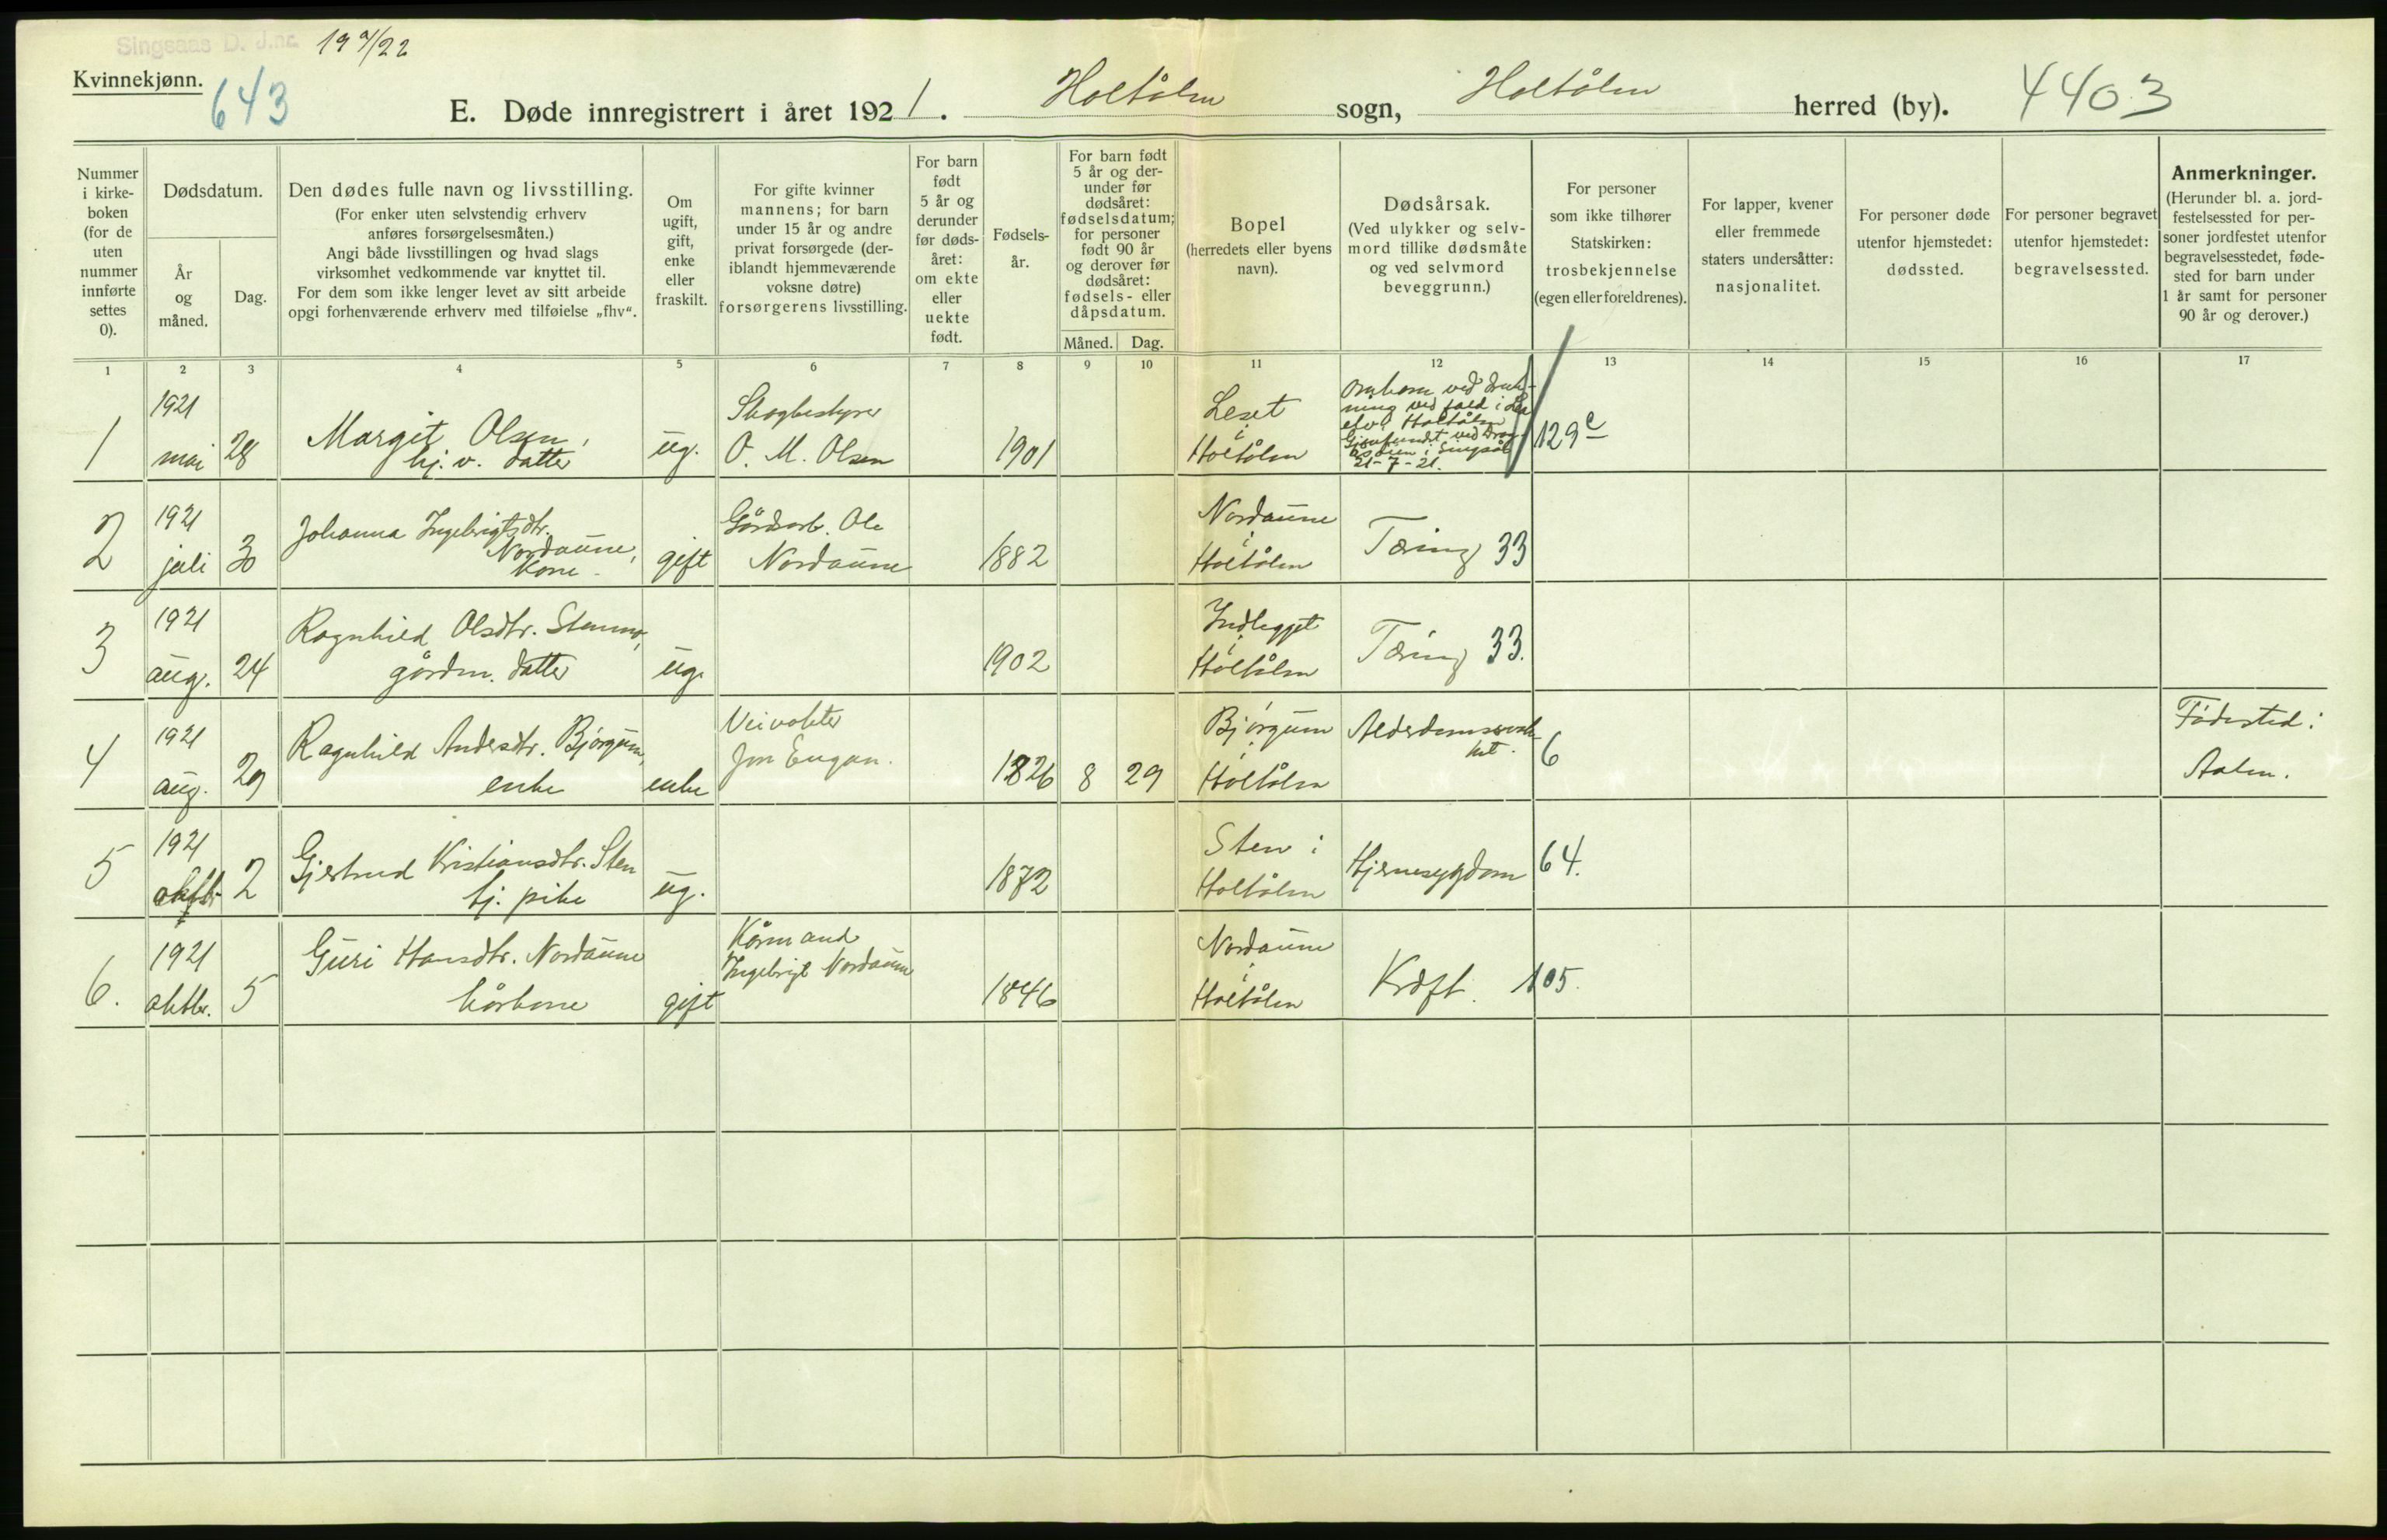 Singsaas D. J.nr. 19 9/22
Kvinnekjønn.
643
E. Døde innregistrert i året 1921. Holtålen sogn, Holtålen herred (by). 4403
Nummer
i kirke-
boken
(for de
uten
nummer
innførte
settes
0).
Dødsdatum.
År
og
måned.
Dag.
Den dødes fulle navn og livsstilling.
(For enker uten selvstendig erhverv
anføres forsørgelsesmåten.)
Angi både livsstillingen og hvad slags
virksomhet vedkommende var knyttet til.
For dem som ikke lenger levet av sitt arbeide
opgi forhenværende erhverv med tilføielse „fhv“.
Om
ugift,
gift,
enke
eller
fraskilt.
For gifte kvinner
mannens; for barn
under 15 år og andre
privat forsørgede (der-
iblandt hjemmeværende
voksne døtre)
forsørgerens livsstilling.
For barn
født
5 år og
derunder
før døds-
året:
om ekte
eller
uekte
født.
Fødsels-
år.
For barn født
5 år og der-
under før
dødsåret:
fødselsdatum;
for personer
født 90 år
og derover før
dødsåret:
fødsels- eller
dåpsdatum.
Måned. Dag.
Bopel
(herredets eller byens
navn).
Dødsårsak.
(Ved ulykker og selv-
mord tillike dødsmåte
og ved selvmord
beveggrunn.)
For personer
som ikke tilhører
Statskirken:
trosbekjennelse
(egen eller foreldrenes).
For lapper, kvener
eller fremmede
staters undersåtter:
nasjonalitet.
For personer døde
utenfor hjemstedet:
dødssted.
For personer begravet
utenfor hjemstedet:
begravelsessted.
Anmerkninger.
(Herunder bl. a. jord-
festelsessted for per-
soner jordfestet utenfor
begravelsesstedet, føde-
sted for barn under
1 år samt for personer
90 år og derover.)
1 2 3 4 5 6 7 8 9 10 11 12 13 14 15 16 17
1
1921
mai 28
Margit Olsen,
hj. v. datter
ug.
Skogbestyrer
O. M. Olsen
1901
Leset
i
Holtålen
Omkom ved druk-
ning ved fald i
elva Holtålen
Gjenfundet ved
i Singsås
21-7-21.
129 e
2
1921
juli 30
Johanna Ingebrigtsdtr.
Nordaune,
kone
gift
Gårdarb. Ole
Nordaune
1882
Nordaune
i
Holtålen
Tæring 33
3
1921
aug. 24
Ragnhild Olsdtr. Stenmo,
gårdm. datter
ug.
1902
Indlegget
i
Holtålen
Tæring 33.
4
1921
aug. 29
Ragnhild Andersdtr. Bjørgum,
enke
enke
Veivokter
Jon Eugan.
1826 8 29
Bjørgum
i
Holtålen
Alderdomssvak-
het. 6
Fødested:
Aalen.
5
1921
oktbr. 2
Gjertrud Kristiansdtr. Sten
tj. pike
ug.
1872
Sten i
Holtålen
Hjernesygdom 64.
6.
1921
oktbr. 5
Guri Hansdtr. Nordaune
kårkone
gift
Kårmand
Ingebrigt Nordaune
1846
Nordaune
i
Holtålen
Kræft. 105.